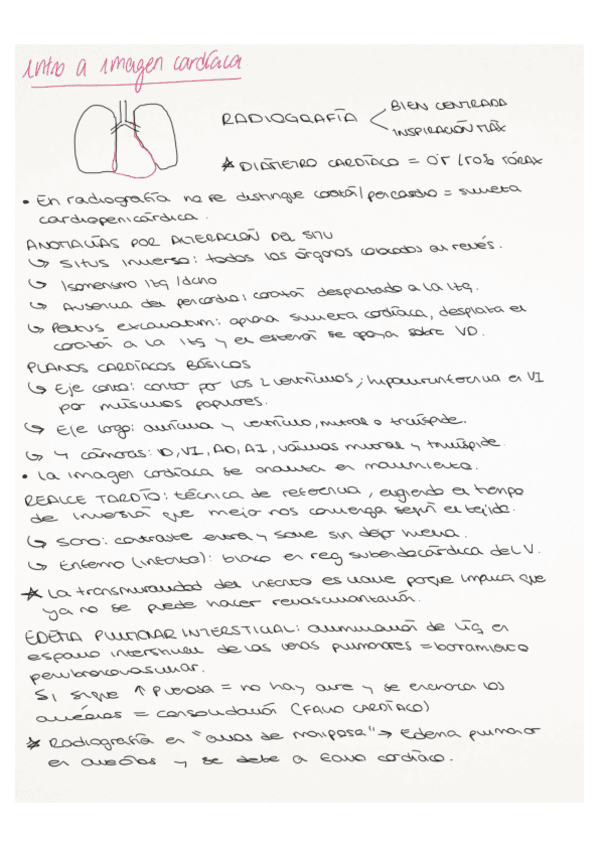 Intro a imagen cardíaca
RADIOGRAFÍA
BIEN CENTRADA
INSPIRACIÓN MÁX
★ DIÁMETRO CARDÍACO = TÓRAX
• En radiografía no se distingue corazón/pericardio = silueta
cardiopericárdica.
ANOMALÍAS POR ALTERACIÓN DEL SITU
↳ Situs inverso: todos los órganos colocados al revés.
↳ Isomerismo izq/dcho
↳ Ausencia del pericardio: corazón desplazado a la izq.
↳ Pectus excavatum: silueta cardíaca, desplaza el
corazón a la izq y el esternón se apoya sobre VD.
PLANOS CARDÍACOS BÁSICOS
↳ Eje corto: corta por los 2 ventrículos; en VI
por músculos papilares.
↳ Eje largo: aurícula y ventrículo, mitral o tricúspide.
↳ 4 cámaras: VD, VI, AD, AI, válvulas mitral y tricúspide.
• La imagen cardíaca se analiza en movimiento.
REALCE TARDÍO: técnica de referencia, eligiendo el tiempo
de inversión que mejor nos convenga según el tejido.
↳ Sano: contraste entra y sale sin dejar huella.
↳ Enfermo (infarto): blanco en reg subendocárdica del V.
★ La transmuralidad del infarto es clave porque implica que
ya no se puede hacer revascularización.
EDEMA PULMONAR INTERSTICIAL: acumulación de líq en
espacio intersticial de las venas pulmonares = borramiento
peribroncovascular.
Si sigue ↑ P venosa = no hay aire y se encharca los
alvéolos = consolidación (FALLO CARDÍACO)
★ Radiografía en "alas de mariposa" → Edema pulmonar
en alvéolos y se debe a fallo cardíaco.